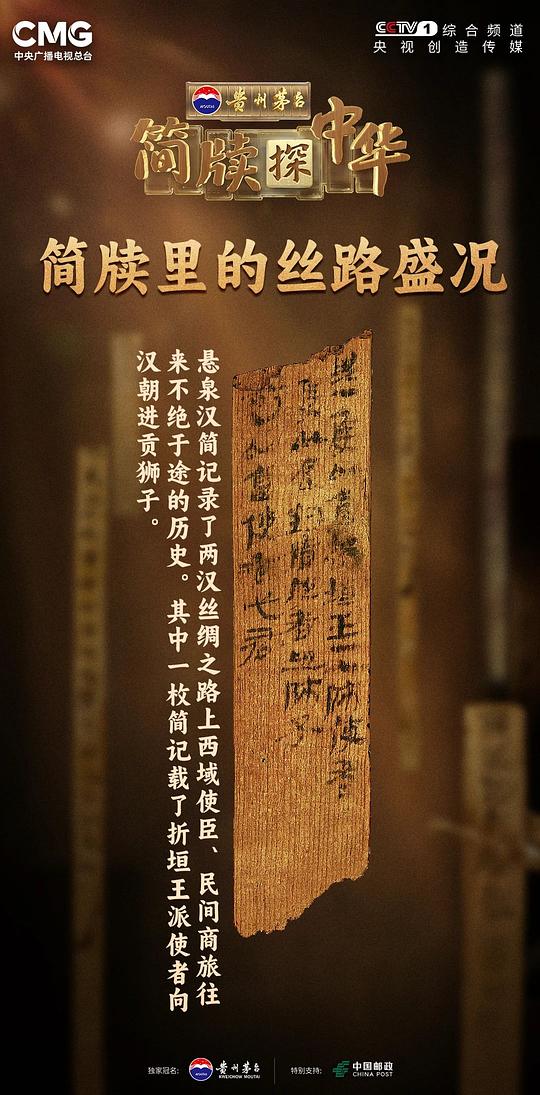 CMG
中央广播电视总台
CCTV 1 综合频道
央视创造传媒
MOUTAI 贵州茅台
简牍探中华
简牍里的丝路盛况
悬泉汉简记录了两汉丝绸之路上西域使臣、民间商旅往
来不绝于途的历史。其中一枚简记载了折垣王派使者向
汉朝进贡狮子。
独家冠名: 贵州茅台 KWEICHOW MOUTAI 特别支持: 中国邮政 CHINA POST